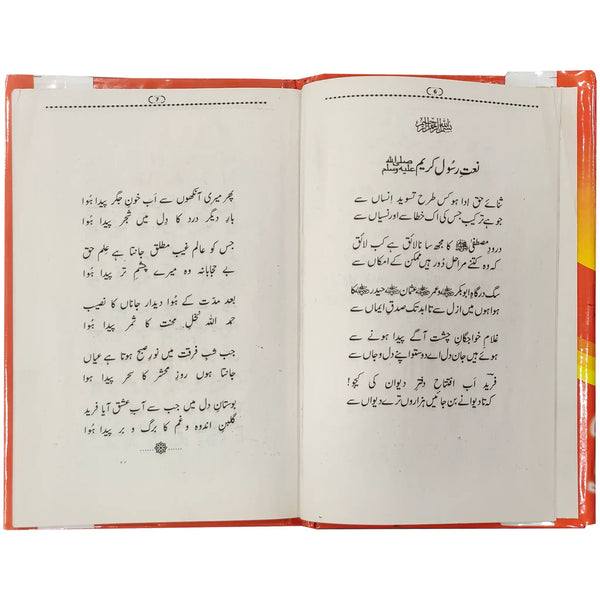 6
بسم اللہ الرحمن الرحیم
نعتِ رسُول کریم صلی اللہ علیہ وسلم
ثنائے حق ادا ہو کس طرح تسوید انساں سے
جو ہے ترکیب جس کی اک خطا سے اور نسیاں سے
درودِ مصطفٰیؐ کا مجھ سا نالائق ہے کب لائق
کہ وہ کتنے مراحل دُور ہیں ممکن کے امکاں سے
سگِ درگاہِ ابوبکرؓ و عمرؓ عثمانؓ و حیدرؓ کا
ہوا ہوں میں ازل سے تا ابد تک صدقِ ایماں سے
غلام خواجگانِ چشت آگے پیدا ہونے سے
ہوئے ہیں جان دل اے دوستو اپنے دل و جاں سے
فریدؔ اَب افتتاحِ دفترِ دیوان کی کیجو!
کہ تا دیوانے بن جائیں ہزاروں ترے دیواں سے
7
پھر میری آنکھوں سے اَب خونِ جگر پیدا ہُوا
بارِ دیگر درد کا دِل میں شجر پیدا ہُوا
جس کو عالم غیبِ مطلق جانتا ہے علِم حق
بے حجابانہ وہ میرے چشمِ تر پیدا ہُوا
بعد مدّت کے ہُوا دیدار جاناں کا نصیب
حمد اللہ نخلِ محنت کا ثمر پیدا ہُوا
جب شبِ فرقت میں نورِ صبح ہوتا ہے عیاں
جانتا ہوں روزِ محشر کا سحر پیدا ہوا
بوستانِ دل میں جب سے آب عشق آیا فرید
گلبنِ اندوہ و غم کا برگ و بر پیدا ہُوا